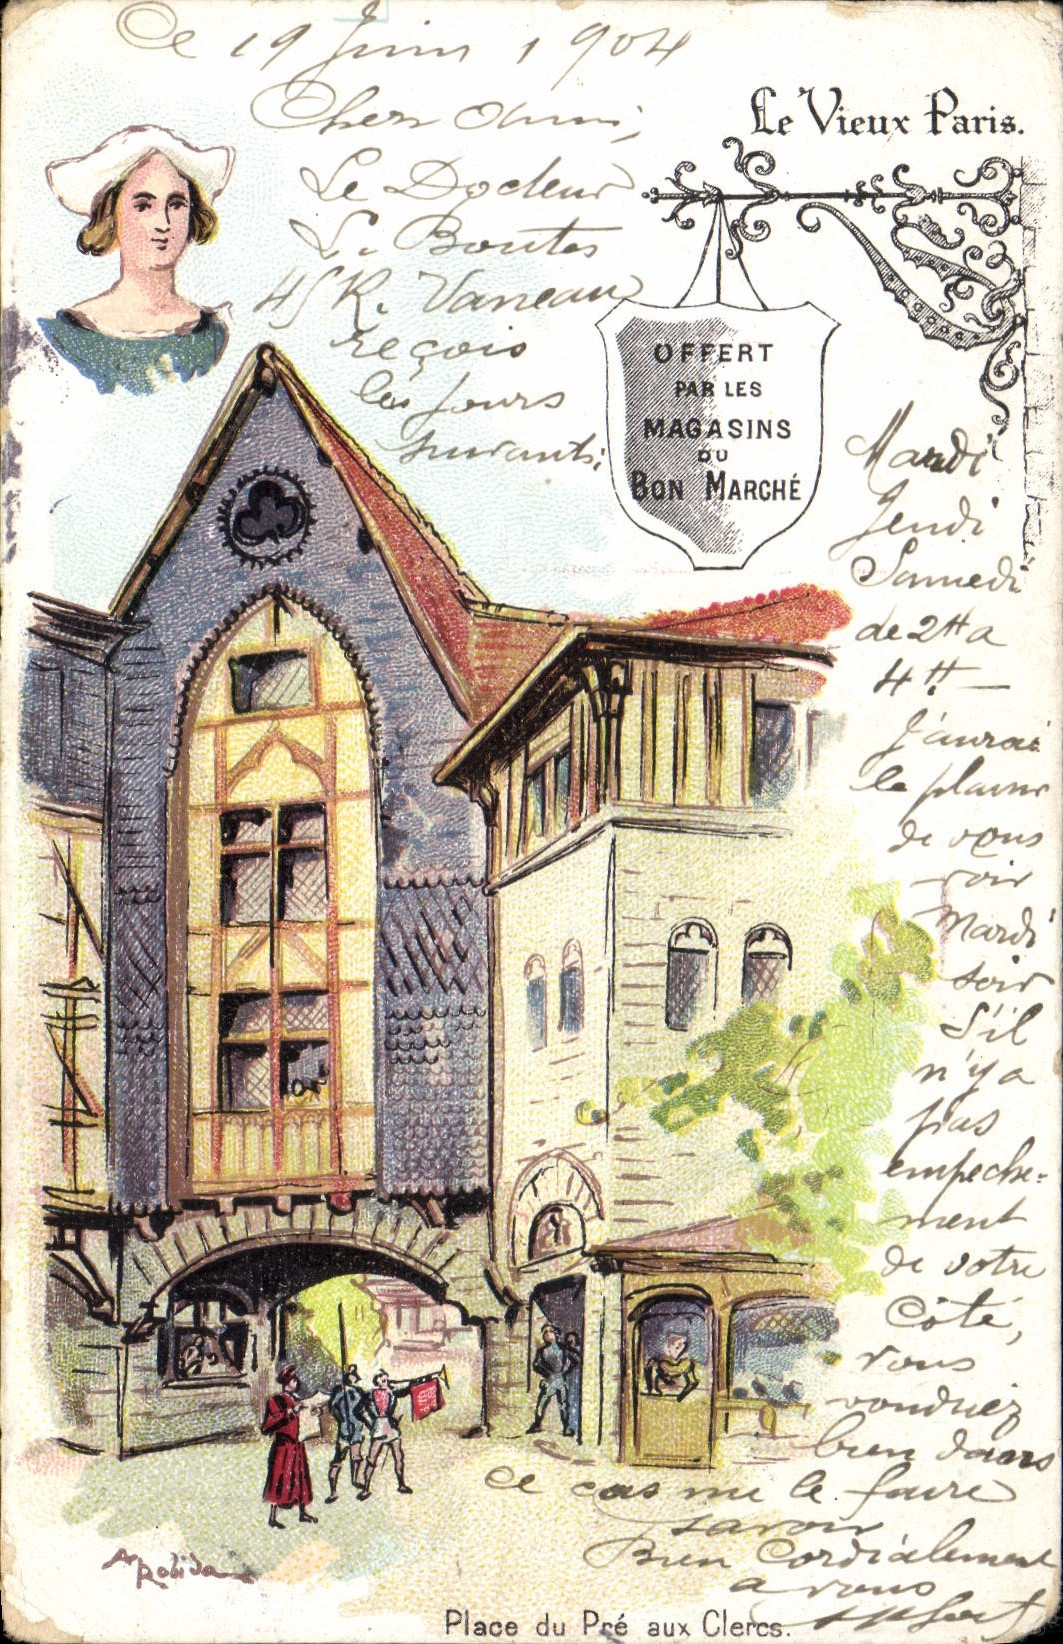 Ce 19 Juin 1904
Cher Ami,
Le Docteur
L. Boutes
45 R. Vaneau
reçois
les jours
suivants:
Mardi
Jeudi
Samedi
de 2H a
4H
J'aurai
le plaisir
de vous
voir
Mardi
soir
S'il
n'y a
pas
empeche-
ment
de votre
Côté,
vous
voudriez
bien dans
ce cas me le faire
savoir
Bien Cordialement
a vous
Le Vieux Paris.
OFFERT
PAR LES
MAGASINS
DU
BON MARCHÉ
A Robida
Place du Pré aux Clercs.